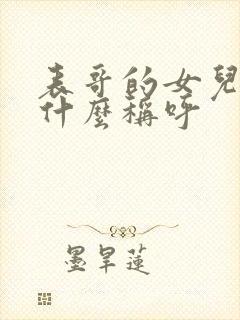 表哥的女兒
什麼稱呼
墨旱蓮